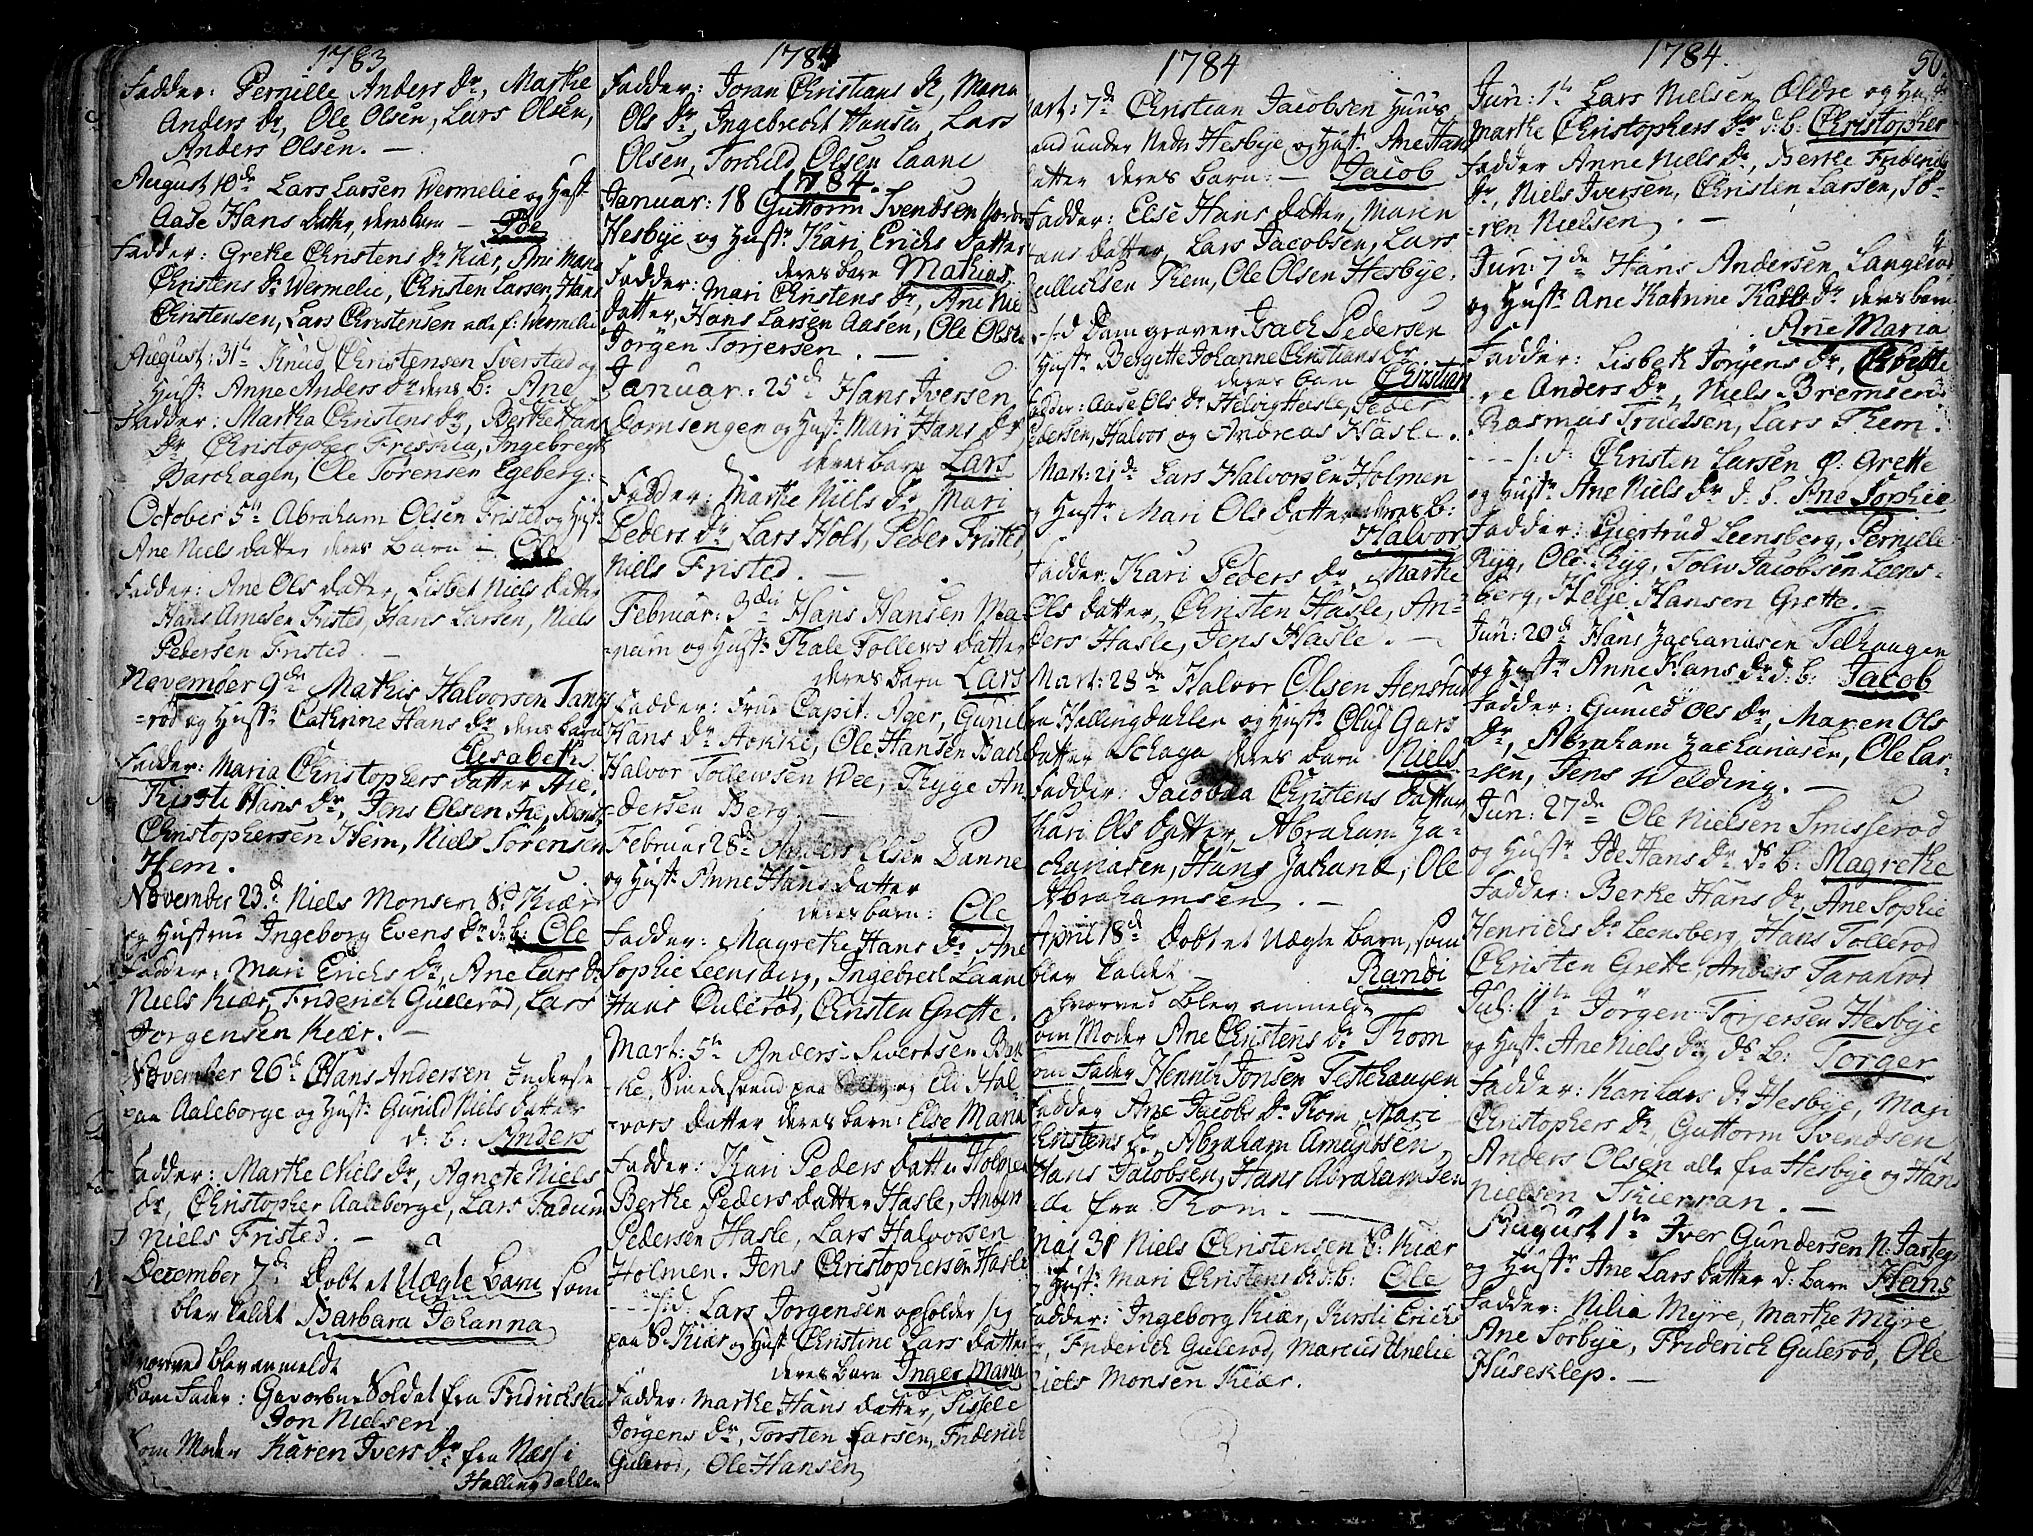 1783
Fadder: Pernille Anders Dr, Marthe
Anders Dr, Ole Olsen, Lars Olsen,
Anders Olsen. —
August 10de Lars Larsen Wermelie og Hust
Aase Hans Datter, deres barn — Poe
Fadder: Grethe Christens Dr Kiær, Ane Maria
Christens Dr Wermelie, Christen Larsen, Hans
Christensen, Lars Christensen alle f: Wermelie
August: 31te Knud Christensen Sverstad og
Hustr Anne Anders Dr deres b: Ane
Fadder: Martha Christens Dr, Berthe Hans
Dr, Christopher Freskia, Ingebregt
Barchagen, Ole Sørensen Egeberg:
October 5te Abraham Olsen Fristed og Hustr
Ane Niels datter deres Barn — Ole
Fadder: Ane Ols datter, Lisbet Niels datter
Hans Arnesen Fristed, Hans Larsen, Niels
Pedersen Fristed. —
November 9de Mathis Halvorsen Tang-
-rød og Hustr Cathrine Hans Dr deres barn
Elisabeth
Fadder: Maria Christophers datter Hie.
Kirste Hans Dr, Jens Olsen Hie, Bent
Christophersen Hem, Niels Sørensen
Hem.
November 23de Niels Monsen S: Kiær
og Hustrue Ingeborg Evens Dr d: b: Ole
Fadder: Mari Erichs Dr, Ane Lars Dr
Niels Kiær, Friderich Gullerød, Lars
Jorgensen Kiær. —
November 26de Hans Andersen Inderste
paa Aaleborge og Hustr Gunild Niels datter
d: b: Anders
Fadder: Marthe Niels Dr, Agnete Niels
dr, Christopher Aaleborge, Lars Fadum
Niels Fristed. —
December 7de Døbt et Uægte Barn som
blev kaldet Barbara Johanna
hvorved blev anmeldt
Som Fader: Gevorben Soldat fra Fridrichstad
Jon Nielsen
Som Moder Karen Ivers Dr fra Næss i
Hallingdahlen
1784
Fadder: Joran Christians Dr, Maria
Ols Dr, Ingebrecht Hansen, Lars
Olsen, Torkild Olsen Laane
1784.
Januar: 18 Guttorm Svendsen Nordre
Hesbye og Hustr Kari Erichs Datter
deres barn Mathias
Fadder: Mari Christens Dr, Ane Nie
datter, Hans Larsen Aasen, Ole Olsen
Jørgen Torjersen. —
Januar: 25de Hans Iversen
Domsengen og Hustr Mari Hans Dr
deres barn Lars
Fadder: Marthe Niels Dr, Mari
Peders Dr, Lars Holt, Peder Fristed
Niels Fristed. —
Februar: 3die Hans Hansen Mea-
-num og Hustr Thale Tollevs datter
deres barn Lars
Fadder: Frue Capit: Ager, Gunil
Hans Dr Hokke, Ole Hansen Bache
Halvor Tollevsen Wee, Thyge An-
-dersen Berg. —
Februar 28de Anders Olsen Danne
og Hustr Anne Hans datter
deres barn: Ole
Fadder: Magrethe Hans Dr, Ane
Sophie Leensberg, Ingebrect Laane
Hans Oulerød, Christen Grette.
Mart: 5te Anders Sivertsen Bak-
-ke, og Eli Hal-
-vors datter deres barn: Else Maria
Fadder: Kari Peders datter Holmen
Berthe Peders datter Hasle, Anders
Pedersen Hasle, Lars Halvorsen
Holmen. Jens Christophersen Hasle
--- s: d: Lars Jorgensen opholder sig
paa S: Kiær og Hust Christine Lars datter
deres barn Inger Maria
Fadder: Marthe Hans datter, Sissele
Jørgens Dr, Torsten Larsen, Friderich
Gulerød, Ole Hansen
1784
Mart: 7de Christian Jacobsen Huus
mand under Nedr Hesbye og Hustr Ane Hans
datter deres barn: — Jacob
Fadder: Else Hans datter, Maren
Hans datter, Lars Jacobsen, Lars
Gullichsen Them, Ole Olsen Hesbye.
s: d Damgraver Isach Pedersen
Hustr Bergitte Johanne Christians Dr
deres barn Christian
Fadder: Aase Ols Dr Helvig Hasle, Peder
Pedersen, Halvor og Andreas Hasle.
Mart: 21de Lars Halvorsen Holmen
og Hustr Mari Ols datter deres b:
Halvor
Fadder: Kari Peders Dr, Marthe
Ols datter, Christen Hasle, An-
ders Hasle, Jens Hasle. —
Mart: 28de Halvor Olsen Aenstrud
fra Hallingdahlen og Hustr Oluf Gars
datter deres barn Niels
Fadder: Jacobaa Christens datter,
Kari Ols datter, Abraham Za-
chariasen, Hans Zachariæ, Ole
Abrahamsen. —
April 18de Døbt et Uægte Barn, som
blev kaldet — Randi
hvorved blev anmeldt
Som Moder Ane Christens Dr Thom
Som Fader Henrich Jonsen Testehaugen
Fadder Ane Jacobs Dr Thom, Mari
Christens Dr, Abraham Amundsen,
Hans Jacobsen, Hans Abrahamsen
alle fra Thom. —
Maj 31 Niels Christensen S: Kiær
og Hustr Mari Christens Dr d: b: Ole
Fadder: Ingeborg Kiær, Kirsti Erichs
Dr, Friderich Gulerød, Marcus Unelie
Niels Monsen Kiær.
1784. 50.
Jun: 1te Lars Nielsen Eldre og Hustr
Marthe Christophers Dr d: b: Christopher
Fadder Anne Niels Dr, Berthe Friderichs
Dr, Niels Iversen, Christen Larsen, Sø-
-ren Nielsen, —
Jun: 7de Hans Andersen Langerød
og Hustr Ane Katrine Karls Dr deres barn
Ane Maria
Fadder: Lisbeth Jørgens Dr,
Anders Dr, Niels Bremsen
Rasmus Truelsen, Lars Them.
--- s: d: Christen Larsen Ø: Grette
og Hustr Ane Niels Dr d. b. Ane Sophia
Fadder: Giertrud Leensberg, Pernille
Ryg, Ole Ryg, Tolv Jacobsen Leens-
berg, Helje Hansen Grette. —
Jun: 20de Hans Zachariasen Telhaugen
og Hustr Anne Hans Dr d: b: Jacob
Fadder: Gunild Ols Dr, Maren Ols
Dr, Abraham Zachariasen, Ole Lar-
-sen, Jens Welding. —
Jun: 27de Ole Nielsen Smisserød
og Hustr Ide Hans Dr ds B: Magrethe
Fadder: Berthe Hans Dr, Ane Sophie
Henrichs Dr Leensberg, Hans Tollerød
Christen Grette, Anders Taranrød
Jul: 11te Jørgen Torjersen Hesbye
og Hustr Ane Niels Dr ds b: Torger
Fadder: Kari Lars Dr Hesbye, Mari
Christophers Dr, Guttorm Svendsen
Anders Olsen alle fra Hesbye og Hans
Nielsen Skierran. —
August 1te Iver Gundersen N: Jarteg
og Hustr Ane Lars datter d: barn Hans
Fadder: Nilia Myre, Marthe Myre
Ane Sørbye, Friderich Gulerød, Ole
Huseklep. —